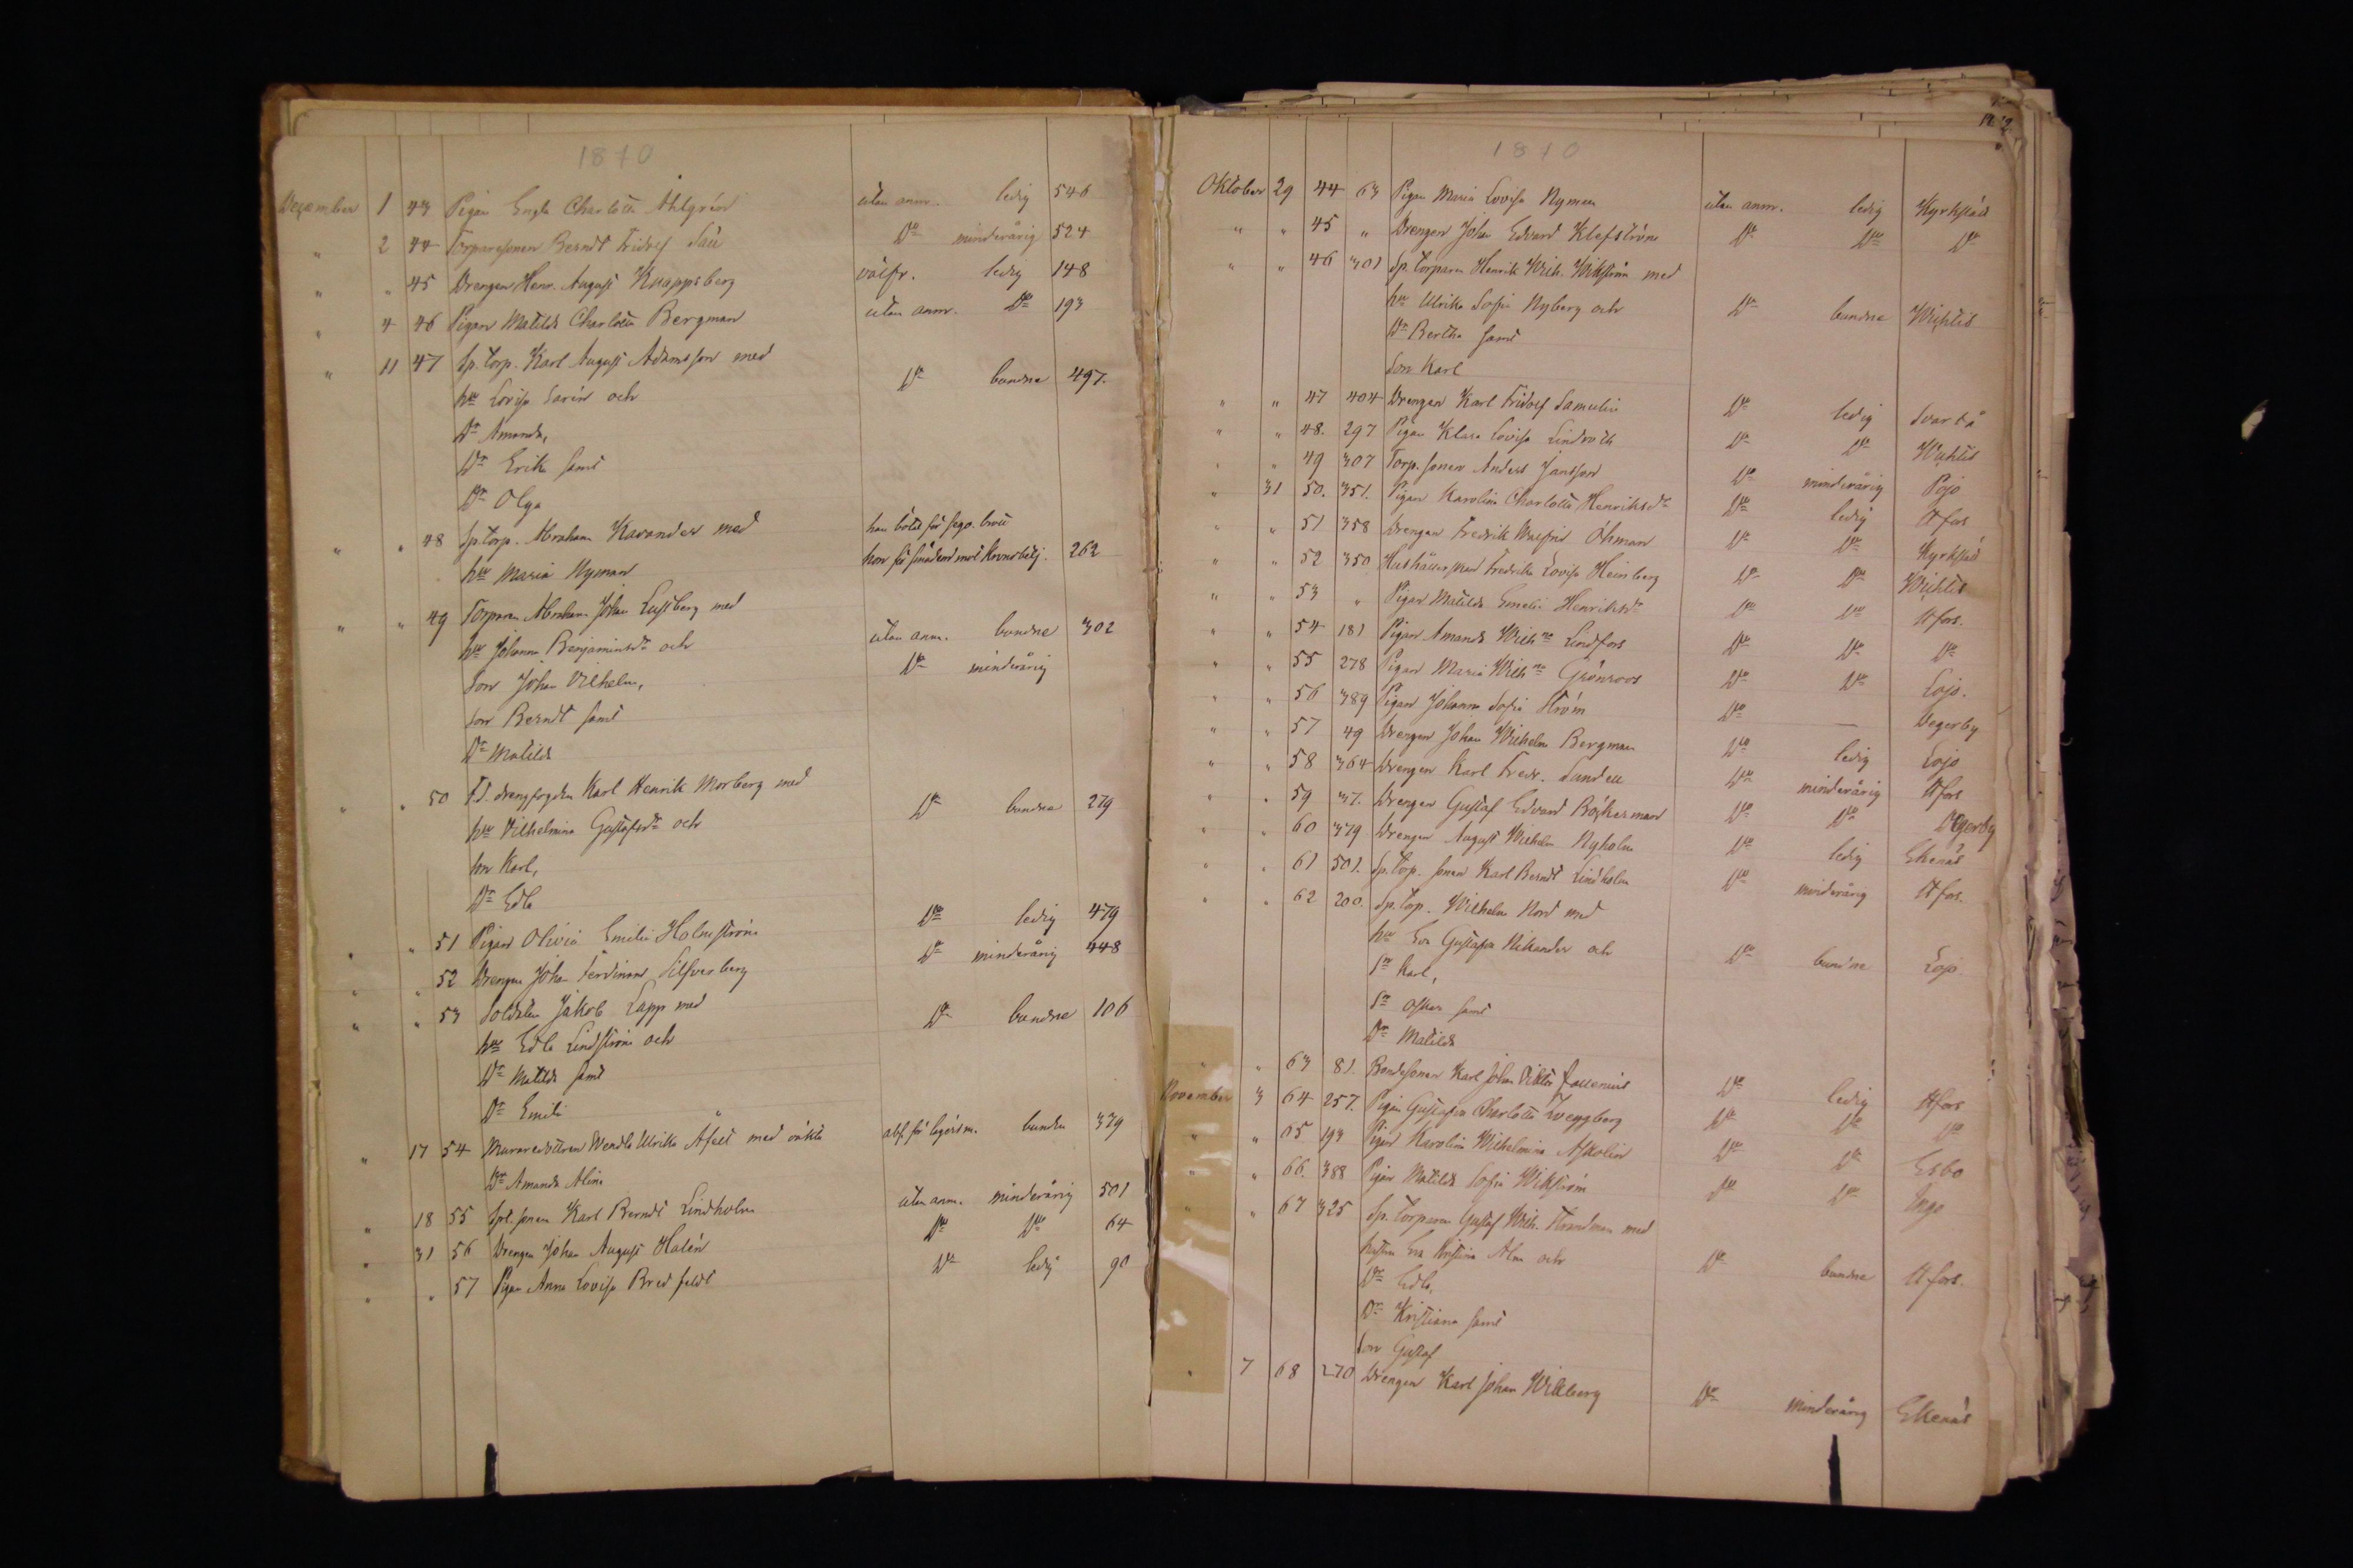 1870
December 1 43 Pigan Engla Charlotta Ahlgrén utan anm. ledig 546
" 2 44 Torparesonen Berndt Fridolf Sall Do minderårig 524
" " 45 Drengen Henr. August Knappsberg välfr. ledig 148
" 4 46 Pigan Matilda Charlotta Bergman utan anm. Do 193
" 11 47 Sp. torp. Karl August Adamsson med
hu Lovisa Sarin och Do bundne 497.
Dr Amanda,
Dr Erika samt
Dr Olga
" " 48 Sp. torp. Abraham Karander med han bött för
hu Maria Nyman hon för 262
" " 49 Torparen Abraham Johan Lustberg med
hu Johanna Benjaminsdr och utan anm. bundne 302
Son Johan Vilhelm, Do minderårig
Son Berndt samt
Dr Matilda
" " 50 F.d. drengfogden Karl Henrik Morberg med
hu Vilhelmina Gustafsdr och Do bundne 279
son Karl,
Dr Edla
" " 51 Pigan Olivia Emilia Holmström Do ledig 479
" " 52 Drengen Johan Ferdinand Silfverberg Do minderårig 448
" " 53 Soldaten Jakob Lapp med
hu Edla Lindström och Do bundne 106
Dr Matilda samt
Dr Emilia
" 17 54 Wendla Ulrika med oäkta abs. för bunden 379
Dr Amanda Alina
" 18 55 Spt. sonen Karl Berndt Lindholm utan anm. minderårig 501
" 31 56 Drengen Johan August Halén Do Do 64
" " 57 Pigan Anna Lovisa Bredfeldt Do ledig 90
1870
Oktober 29 44 63 Pigan Maria Lovisa Nyman utan anm. ledig Kyrkslätt
" " 45 " Drengen Johan Edvard Klefström Do Do Do
" " 46 301 Sp. torparen Henrik Wilh. Wikström med
hu Ulrika Sofia Nyberg och Do bundne Wichtis
Dr Bertha samt
Son Karl
" " 47 404 Drengen Karl Fridolf Samulin Do ledig Svartå
" " 48. 297 Pigan Klara Lovisa Lindroth Do Do Wichtis
" " 49 307 Torp. sonen Anders Jansson Do minderårig Pojo
" 31 50. 351. Pigan Karolina Charlotta Henriksdr Do ledig Hfors
" " 51 358 Drengen Fredrik Walfrid Öhman Do Do Kyrkslätt
" " 52 350 Hushållerskan Fredrika Lovisa Heinberg Do Do Wichtis
" " 53 " Pigan Matilda Emelie Henriksdr Do Do Hfors.
" " 54 181 Pigan Amanda Wilhna Lindfors Do Do Do
" " 55 278 Pigan Maria Wilhna Grönroos Do Do Lojo.
" " 56 389 Pigan Johanna Sofia Ström Do — Degerby
" " 57 49 Drengen Johan Wilhelm Bergman Do ledig Lojo
" " 58 364 Drengen Karl Fredr. Sundell Do minderårig Hfors
" " 59 37. Drengen Gustaf Edvard Böckerman Do Do Degerby
" " 60 379 Drengen August Wilhelm Nyholm Do ledig Ekenäs
" " 61 501. Sp. torp. sonen Karl Berndt Lindholm Do minderårig Hfors.
" " 62 200. Sp. torp. Wilhelm Nord med
hu Eva Gustafva Nikander och Do bundne Lojo
Sn Karl,
Sn Oskar samt
Dr Matilda
" " 63 81. Bondesonen Karl Johan Viktor Do ledig Hfors
November 3 64 257. Pigan Gustafva Charlotta Tveggberg Do Do Do
" " 65 193 Pigan Karolina Wilhelmina Askolin Do Do Esbo
" " 66. 388 Pigan Matilda Sofia Wikström Do Do Ingo
" " 67 325 Sp. torparen Gustaf Wilh. Strandman med
hustru Eva Kristina Alm och Do bundne Hfors.
Dr Edla,
Dr Kristiana samt
Son Gustaf
" 7 68 270 Drengen Karl Johan Willberg Do minderårig Ekenäs